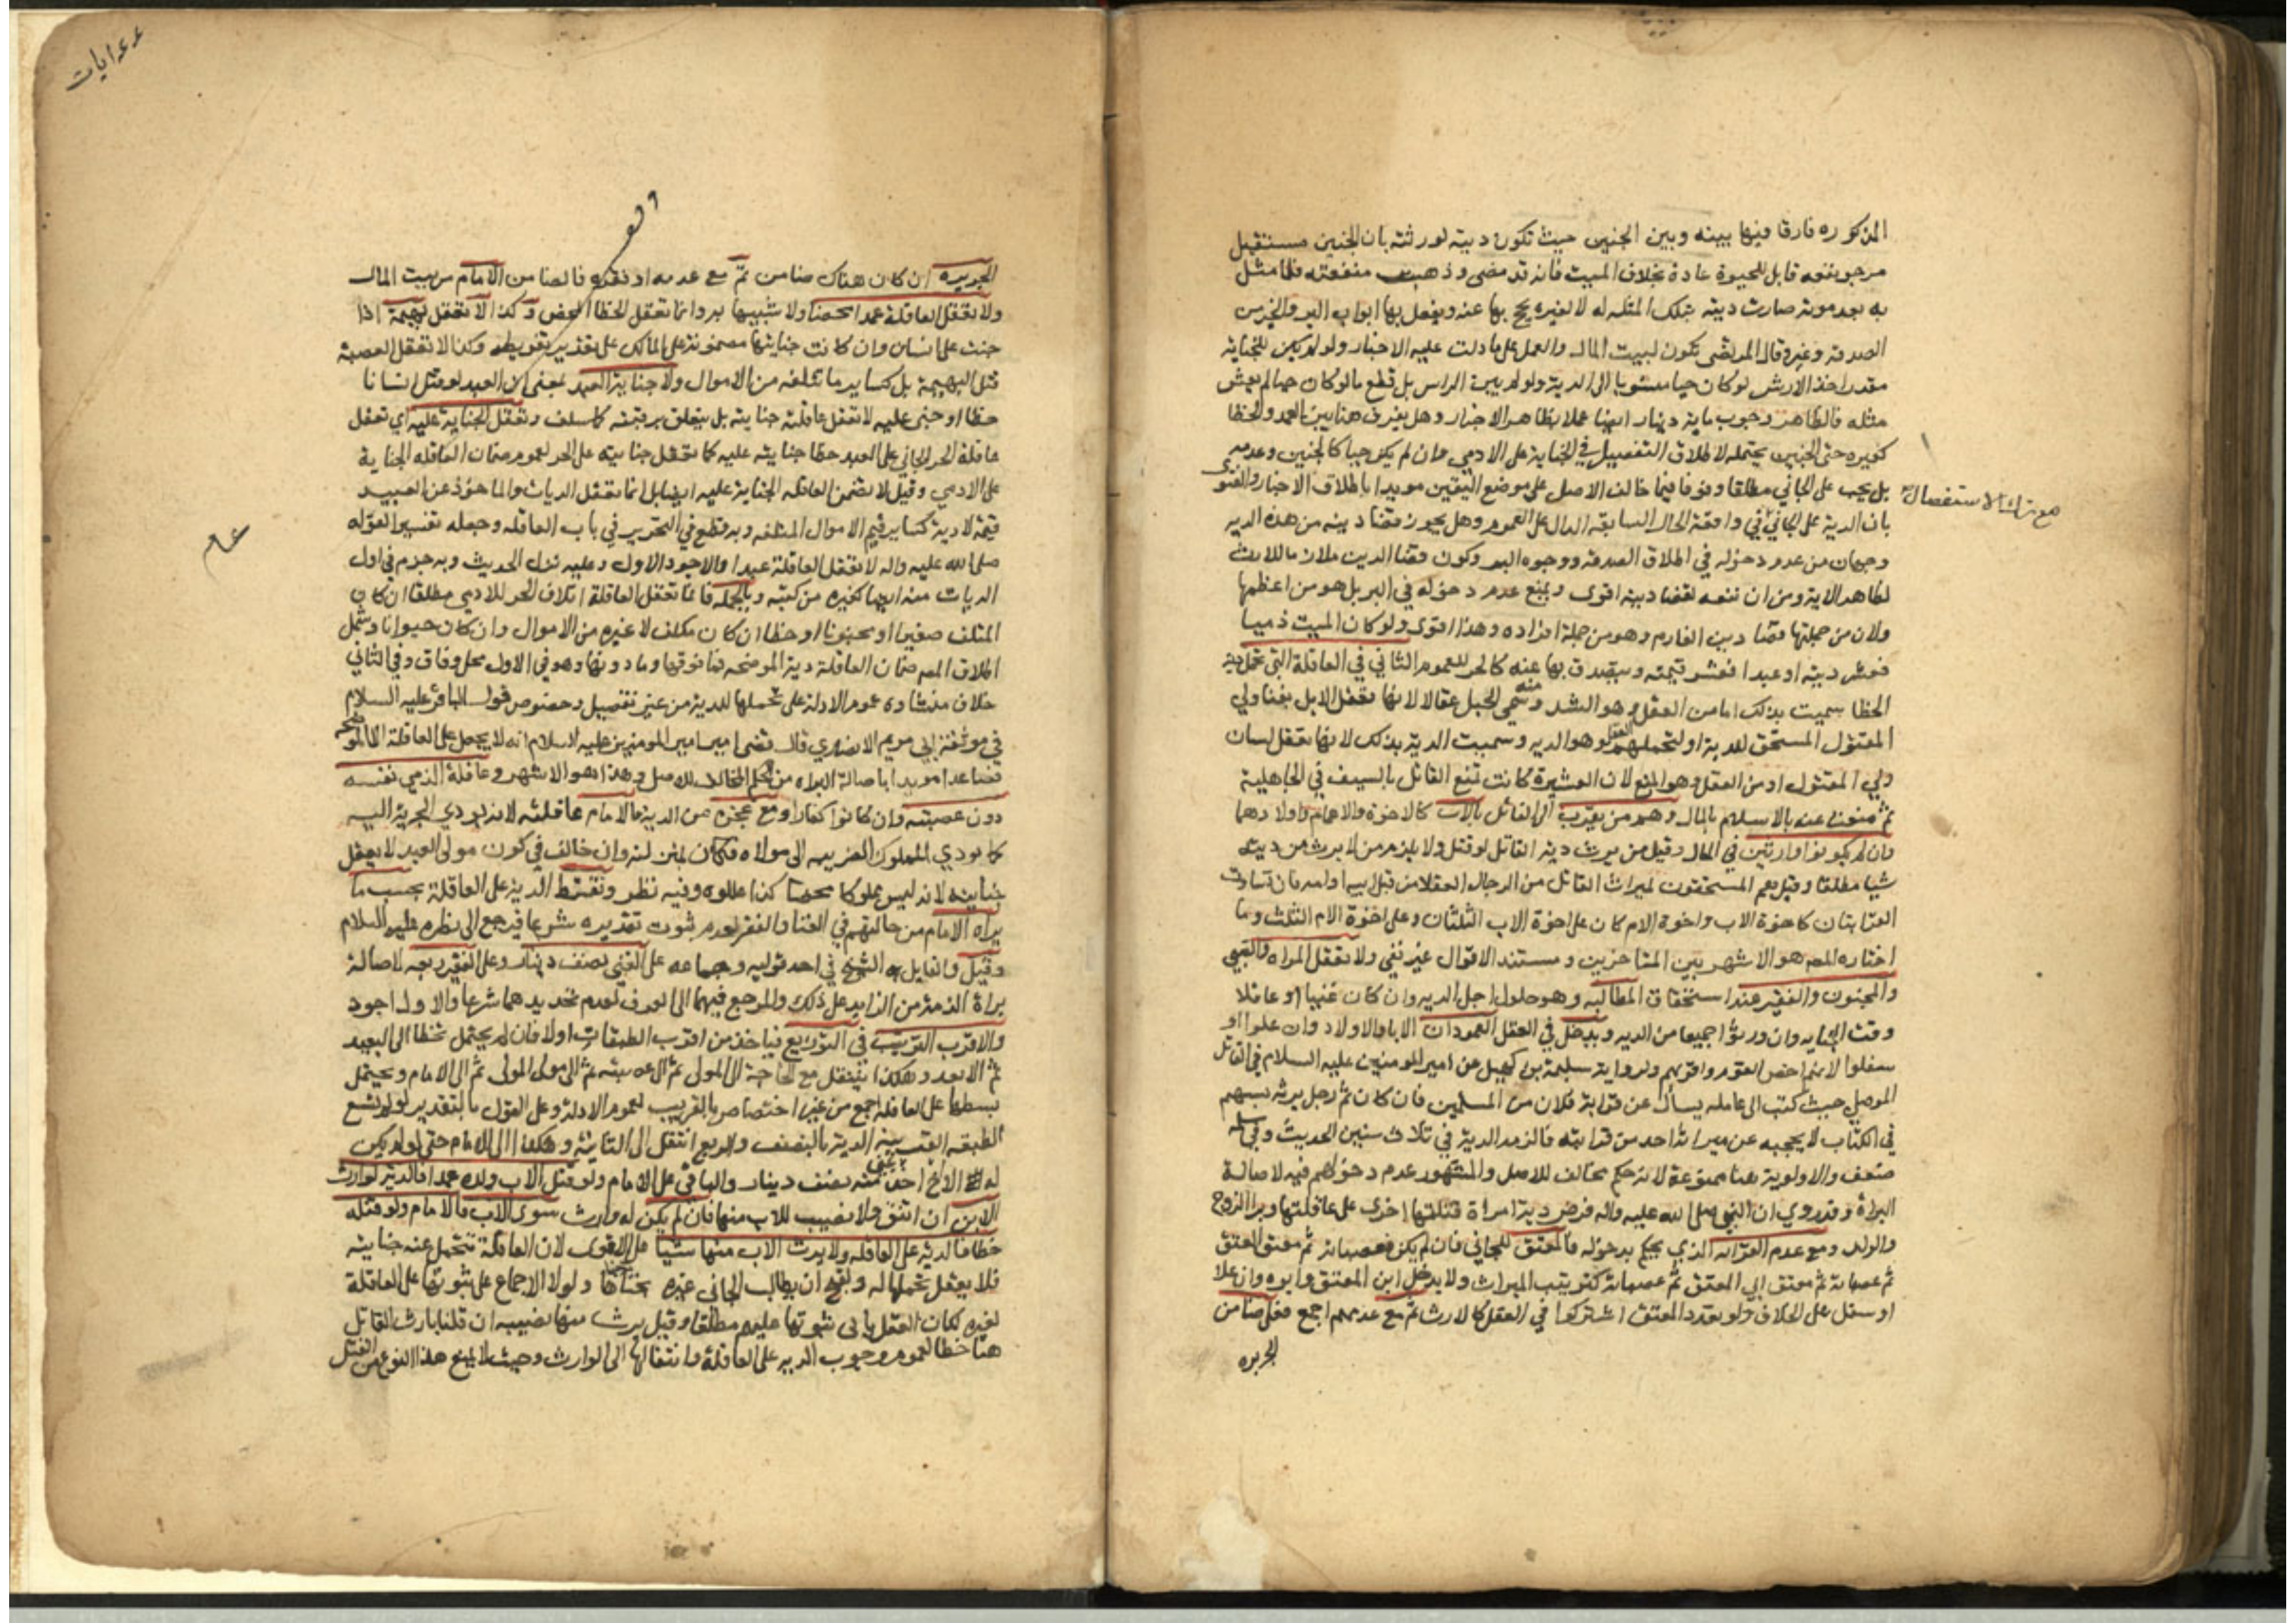 المذكوره فارقا فيها بينه وبين الجنين حيث تكون ديته لورثته بان الجنين مستقبل
مرجو نفعه قابل للحيوة عادة بخلاف الميت فانه قد مضى وذهبت منفعته فلما مثل
به بعد موته صارت ديته بتلك المثله له لا لغيره يحج بها عنه ويفعل بها ابواب البر والخير من
الصدقه وغيره قال المرتضى يكون لبيت المال والعمل على ما دلت عليه الاخبار ولو لم يكن للجناية
مقدر اخذ الارش لو كان حيا منسوبا الى الدية ولو لم يبن الراس بل قطع ما لو كان حيا لم يعش
مثله فالظاهر وجوب ماية دينار ايضا عملا بظاهر الاخبار وهل يفرق هنا بين العمد والخطا
كغيره حتى الجنين يحتمله لاطلاق التفصيل في الجناية على الادمي وان لم يكن حيا كالجنين وعدمه
بل يجب على الجاني مطلقا وقوفا فيما خالف الاصل على موضع اليقين مويدا باطلاق الاخبار والفتوى
مع ترك الاستفصال
بان الدية على الجاني في واقعة الحال السابقه الدال على العموم وهل يجوز قضا دينه من هذه الديه
وجهان من عدم دخوله في اطلاق الصدقه ووجوه البر وكون قضا الدين ملازما للارث
لظاهر الاية ومن ان نفعه لقضا دينه اقوى ويمنع عدم دخوله في البر بل هو من اعظمها
ولان من جملتها قضا دين الغارم وهو من جملة افراده وهذا اقوى ولو كان الميت ذميا
فعشر ديته او عبدا فعشر قيمته ويتصدق بها عنه كالحر للعموم الثاني في العاقلة التي تحمل دية
الخطا سميت بذلك اما من العقل وهو الشد ومنه سمي الحبل عقالا لانها تعقل الابل بفنا ولي
المقتول المستحق للدية او لتحملهم العقل وهو الديه وسميت الدية بذلك لانها تعقل لسان
ولي المقتول او من العقل وهو المنع لان العشيرة كانت تمنع القاتل بالسيف في الجاهلية
ثم منعت عنه بالاسلام بالمال وهم من تقرب الى القاتل بالاب كالاخوة والاعمام واولادهما
وان لم يكونوا وارثين في الحال وقيل من يرث دية القاتل لو قتل ولا يلزم من لا يرث من ديته
شيا مطلقا وقيل هم المستحقون لميراث القاتل من الرجال العقلا من قبل ابيه او امه فان تساوت
القرابتان كاخوة الاب واخوة الام كان على اخوة الاب الثلثان وعلى اخوة الام الثلث وما
اختاره المصـ هو الاشهر بين المتاخرين ومستند الاقوال غير نقي ولا تعقل المراه والصبي
والمجنون والفقير عند استحقاق المطالبه وهو حلول اجل الديه وان كان غنيا او عاقلا
وقت الجنايه وان ورثوا جميعا من الديه ويدخل في العقل العمودان الابا والاولاد وان علوا او
سفلوا لانهم اخص القوم واقربهم ولرواية سلمة بن كهيل عن امير المومنين عليه السلام في القاتل
الموصلي حيث كتب الى عامله يسال عن قرابة فلان من المسلمين فان كان ثم رجل يرثه بسهم
في الكتاب لا يحجبه عن ميراثه احد من قرابته فالزمه الدية في ثلاث سنين الحديث وفي سلمه
ضعف والاولوية هنا ممنوعة لانه حكم مخالف للاصل والمشهور عدم دخولهم فيه لاصالة
البراة وقد روي ان النبي صلى الله عليه واله فرض دية امراة قتلتها اخرى على عاقلتها وبرا الزوج
والولد ومع عدم القرابه الذي يحكم بدخوله فالمعتق للجاني فان لم يكن فعصباته ثم معتق المعتق
ثم عصباته ثم معتق ابي المعتق ثم عصباته كترتيب الميراث ولا يدخل ابن المعتق وابوه وان علا
او سفل على الخلاف ولو تعدد المعتق اشتركوا في العقل كالارث ثم مع عدمهم اجمع فعلى ضامن
الجريره
الجريره ان كان هناك ضامن ثم مع عدمه او فقره فالضامن الامام من بيت المال
ولا تعقل العاقلة عمدا محضا ولا شبيها به وانما تعقل الخطا المحض وكذا لا تعقل بهيمة اذا
جنت على انسان وان كانت جنايتها مضمونة على المالك على تقدير تفريطه وكذا لا تعقل العصبة
قتل البهيمة بل كساير ما تتلفه من الاموال ولا جناية العبد بمعنى ان العبد لو قتل انسانا
خطا او جنى عليه لا تعقل عاقلته جنايته بل يتعلق برقبته كما سلف وتعقل الجناية عليه اي تعقل
عاقلة الحر الجاني على العبد خطا جنايته عليه كما تعقل جنايته على الحر لعموم ضمان العاقله الجناية
على الادمي وقيل لا تضمن العاقله الجناية عليه ايضا بل انما تعقل الديات والماخوذ عن العبيد
قيمة لا دية كساير قيم الاموال المتلفه وبه قطع في التحرير في باب العاقله وجعله تفسير القوله
صلى الله عليه واله لا تعقل العاقلة عبدا والاجود الاول وعليه نزل الحديث وبه جزم في اول
الديات منه ايضا كغيره من كتبه وبالجمله فانما تعقل العاقلة اتلاف الحر للادمي مطلقا ان كان
المتلف صغيرا او مجنونا او خطا ان كان مكلف لا غيره من الاموال وان كان حيوانا وشمل
اطلاق المصـ ضمان العاقلة دية الموضحه فما فوقها وما دونها وهو في الاول محل وفاق وفي الثاني
خلاف منشاوه عموم الادلة على تحملها للدية من غير تفصيل وخصوص قول الباقر عليه السلام
في موثقة ابي مريم الانصاري قال قضى امير المومنين عليه السلام انه لا يحمل على العاقلة الا الموضحه
فصاعدا مويدا باصالة البراه من الحكم المخالف للاصل وهذا هو الاشهر وعاقلة الذمي نفسه
دون عصبته وان كانوا كفارا ومع عجزه عن الدية فالامام عاقلته لانه يودي الجزية اليه
كما يودي المملوك الضريبه الى مولاه فكان بمنزلته وان خالف في كون مولى العبد لا يعقل
جنايته لانه ليس مملوكا محضا كذا عللوه وفيه نظر وتقسط الدية على العاقلة بحسب ما
يراه الامام من حالتهم في الغنا والفقر لعدم ثبوت تقديره شرعا فيرجع الى نظره عليه السلام
وقيل والقايل به الشيخ في احد قوليه وجماعه على الغني نصف دينار وعلى الفقير ربعه لاصالة
براة الذمة من الزايد على ذلك والمرجع فيهما الى العرف لعدم تحديدهما شرعا والاول اجود
والاقرب الترتيب في التوزيع فياخذ من اقرب الطبقات اولا فان لم يحتمل تخطا الى البعيد
ثم الابعد وهكذا ينتقل مع الحاجة الى المولى ثم الى عصبته ثم الى مولى المولى ثم الى الامام ويحتمل
بسطها على العاقله اجمع من غير اختصاص بالقريب لعموم الادلة وعلى القول بالتقدير لو لم تسع
الطبقه القريبة الدية بالنصف والربع انتقل الى الثانية وهكذا الى الامام حتى لو لم يكن
له الا اخ غني اخذ منه نصف دينار والباقي على الامام ولو قتل الاب ولده عمدا فالدية لوارث
الابن ان اتفق ولا نصيب للاب منها فان لم يكن له وارث سوى الاب فالامام ولو قتله
خطا فالدية على العاقله ولا يرث الاب منها شيا على الاقوى لان العاقلة تتحمل عنه جنايته
فلا يعقل تحملها له ان يطالب الجاني غيره ولولا الاجماع على ثبوتها على العاقلة
لغيره لكان العقل يابى ثبوتها عليهم مطلقا وقيل يرث منها نصيبه ان قلنا بارث القاتل
هنا خطا لعموم وجوب الديه على العاقلة وانتقالها الى الوارث وحيث لا يمنع هذا النوع من القتل
عام